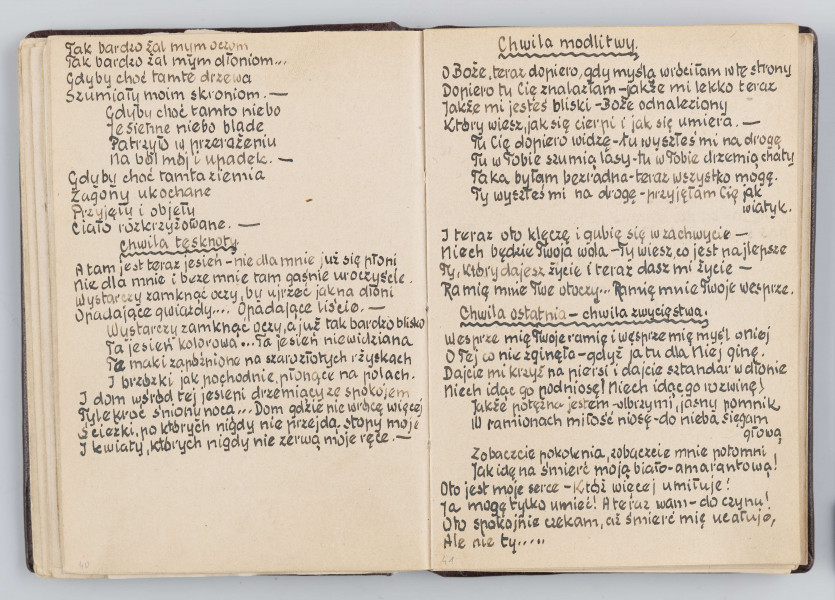 Tak bardzo żal mym oczom
Tak bardzo żal mym dłoniom...
Gdyby choć tamte drzewa
Szumiały moim skroniom. —
Gdyby choć tamto niebo
Jesienne niebo blade
Patrzyło w przerażeniu
Na ból mój i upadek. —
Gdyby choć tamta ziemia
Zagony ukochane
Przyjęły i objęły
Ciało rozkrzyżowane. —
Chwila tęsknoty.
A tam jest teraz jesień – nie dla mnie już się płoni
Nie dla mnie i beze mnie tam gaśnie uroczyście.
Wystarczy zamknąć oczy, by ujrzeć jak na dłoni
Opadające gwiazdy.... Opadające liście. —
Wystarczy zamknąć oczy, a już tak bardzo blisko
Ta jesień kolorowa... Ta jesień niewidziana
Te maki zapóźnione na szarozłotych rżyskach
I brzózki jak pochodnie, płonące na polach.
I dom wśród tej jesieni drzemiący ze spokojem
Tylekroć śniony nocą... Dom gdzie nie wrócę więcej
Ścieżki, po których nigdy nie przejdą stopy moje
I kwiaty, których nigdy nie zerwą moje ręce. —
40
Chwila modlitwy.
O Boże, teraz dopiero, gdy myślą wróciłam w tę strony
Dopiero tu Cię znalazłam – jakże mi lekko teraz
Jakże mi jesteś bliski – Boże odnaleziony
Który wiesz, jak się cierpi i jak się umiera. —
Tu Cię dopiero widzę – tu wyszłeś mi na drogę
Tu w Tobie szumią lasy – tu w Tobie drzemią chaty
Taka byłam bezradna – teraz wszystko mogę.
Ty wyszłeś mi na drogę – przyjęłam Cię jak
wiatyk.
I teraz oto klęczę i gubię się w zachwycie —
Niech będzie Twoja wola – Ty wiesz, co jest najlepsze
Ty, który dajesz życie i teraz dasz mi życie —
Ramię mnie Twe otoczy... Ramię mnie Twoje wesprze.
Chwila ostatnia – chwila zwycięstwa.
Wesprze mię Twoje ramię i wesprze mię myśl o Niej
O Tej co nie zginęła – gdyż ja tu dla Niej ginę.
Dajcie mi krzyż na piersi i dajcie sztandar w dłonie
Niech idąc go podniosę! Niech idąc go rozwinę!
Jakże potężna jestem – olbrzymi, jasny pomnik
W ramionach miłość niosę – do nieba sięgam
głową
Zobaczcie pokolenia, zobaczcie mnie potomni
Jak idę na śmierć moją biało-amarantową!
Oto jest moje serce – Któż więcej umiłuje!
Ja mogę tylko umieć! A teraz wam – do czynu!
Oto spokojnie czekam, aż śmierć mię ucałuje,
Ale nie ty.....
41